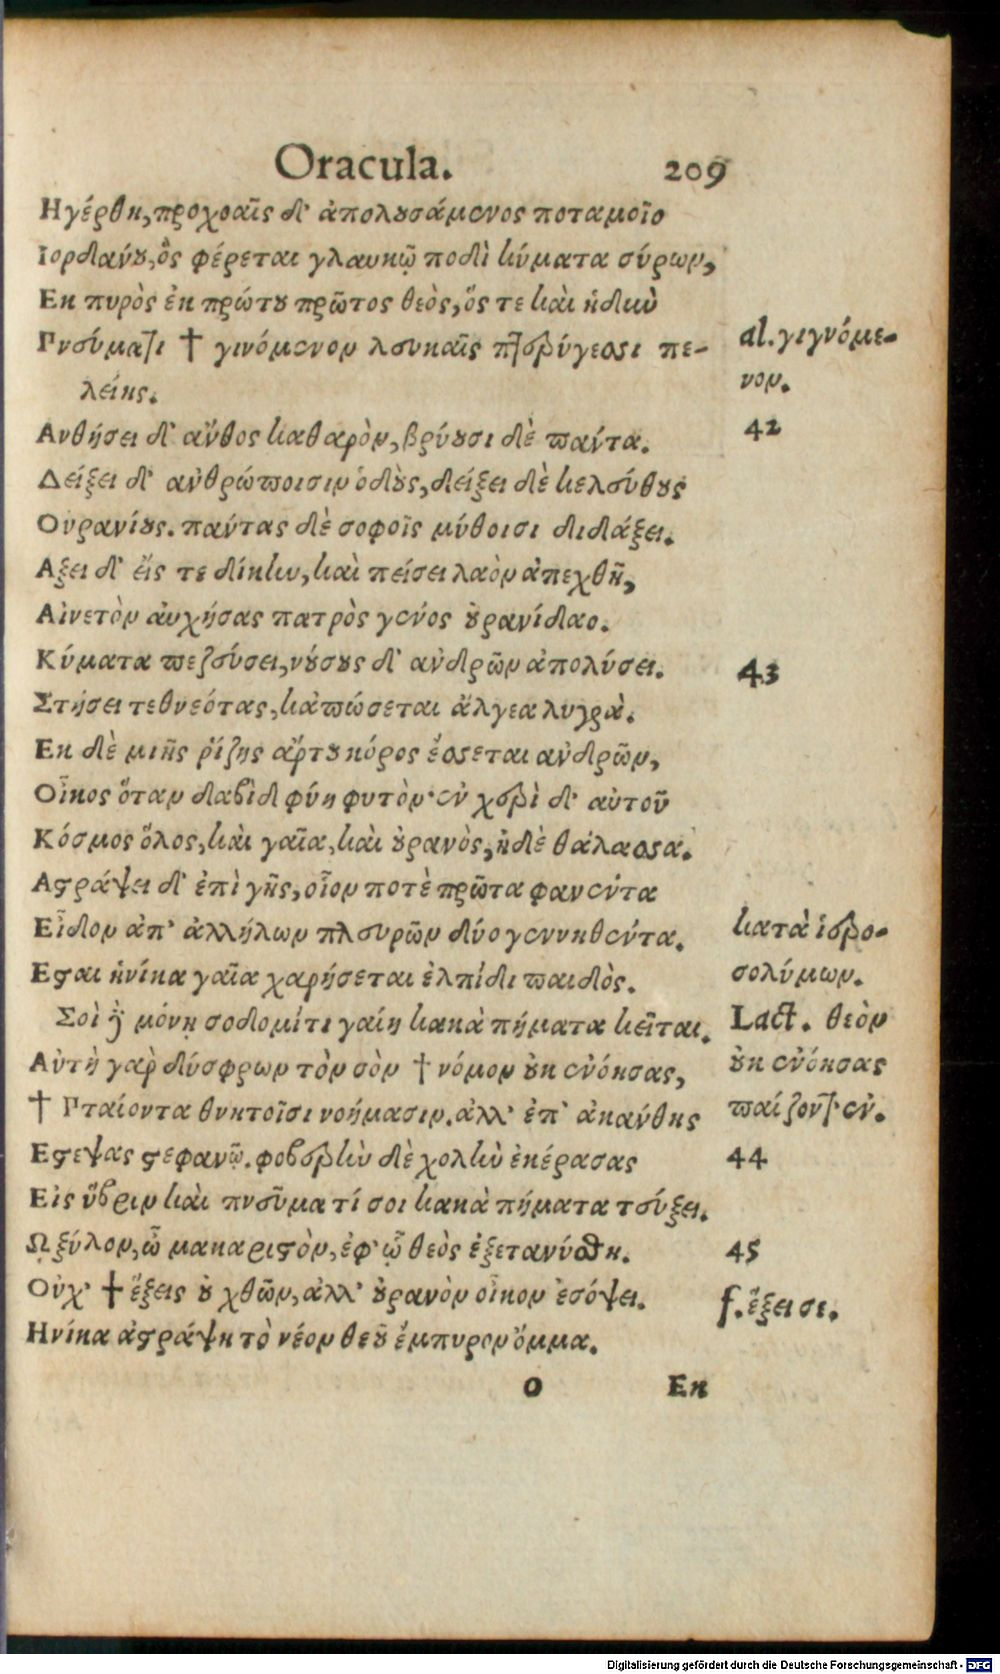 Oracula. 209
Ηγέρθη, προχοαῖς δ' ἀπολουσάμενος ποταμοῖο
Ιορδάνου, ὃς φέρεται γλαυκῷ ποδὶ κύματα σύρων,
Εκ πυρὸς ἐκ πρώτου πρῶτος θεὸς, ὅς τε καὶ ἡδιὺ
Πνεύματι † γινόμενον λευκαῖς πτερύγεσσι πε-
λείης.
Ανθήσει δ' ἄνθος καθαρὸν, βρύουσι δὲ πάντα.
Δείξει δ' ἀνθρώποισιν ὁδοὺς, δείξει δὲ κελεύθους
Ουρανίους. πάντας δὲ σοφοῖς μύθοισι διδάξει.
Αξει δ' εἴς τε δίκην, καὶ πείσει λαὸν ἀπεχθῆ,
Αἰνετὸν αὐχήσας πατρὸς γένος οὐρανίδαο.
Κύματα πεζεύσει, νούσους δ' ἀνδρῶν ἀπολύσει.
Στήσει τεθνεότας, κἀπώσεται ἄλγεα λυγρά.
Εκ δὲ μιῆς ῥίζης ἄρτου κόρος ἔσσεται ἀνδρῶν,
Οἶκος ὅταν δαβὶδ φύη φυτόν· ἐν χερὶ δ' αὐτοῦ
Κόσμος ὅλος, καὶ γαῖα, καὶ οὐρανὸς, ἠδὲ θάλασσα.
Αστράψει δ' ἐπὶ γῆς, οἷον ποτὲ πρῶτα φανέντα
Εἶδον ἀπ' ἀλλήλων πλευρῶν δύο γεννηθέντα.
Εσται ἡνίκα γαῖα χαρήσεται ἐλπίδι παιδὸς.
Σοὶ δὲ μόνῃ σοδομίτι γαίῃ κακὰ πήματα κεῖται.
Αὐτὴ γὰρ δύσφρων τὸν σὸν † νόμον οὐκ ἐνόησας,
† Πταίοντα θνητοῖσι νοήμασιν. ἀλλ' ἐπ' ἀκάνθης
Εστεψας στεφανῷ. φοβερὴν δὲ χολὴν ἐκέρασας
Εἰς ὕβριν καὶ πνεῦμα τί σοι κακὰ πήματα τεύξει.
Ω ξύλον, ὦ μακαριστὸν, ἐφ' ᾧ θεὸς ἐξετανύσθη.
Οὐχ' † ἕξεις οὐ χθῶν, ἀλλ' οὐρανὸν οἶκον ἐσόψει.
Ηνίκα ἀστράψῃ τὸ νέον θεοῦ ἔμπυρον ὄμμα.
O Εκ
al. γιγνόμε-
νον.
42
43
κατὰ ἱερο-
σολύμων.
Lact. θεὸν
οὐκ ἐνόησας
παίζοντ' ἐν.
44
45
f. ἕξει σε.
Digitalisierung gefördert durch die Deutsche Forschungsgemeinschaft - DFG